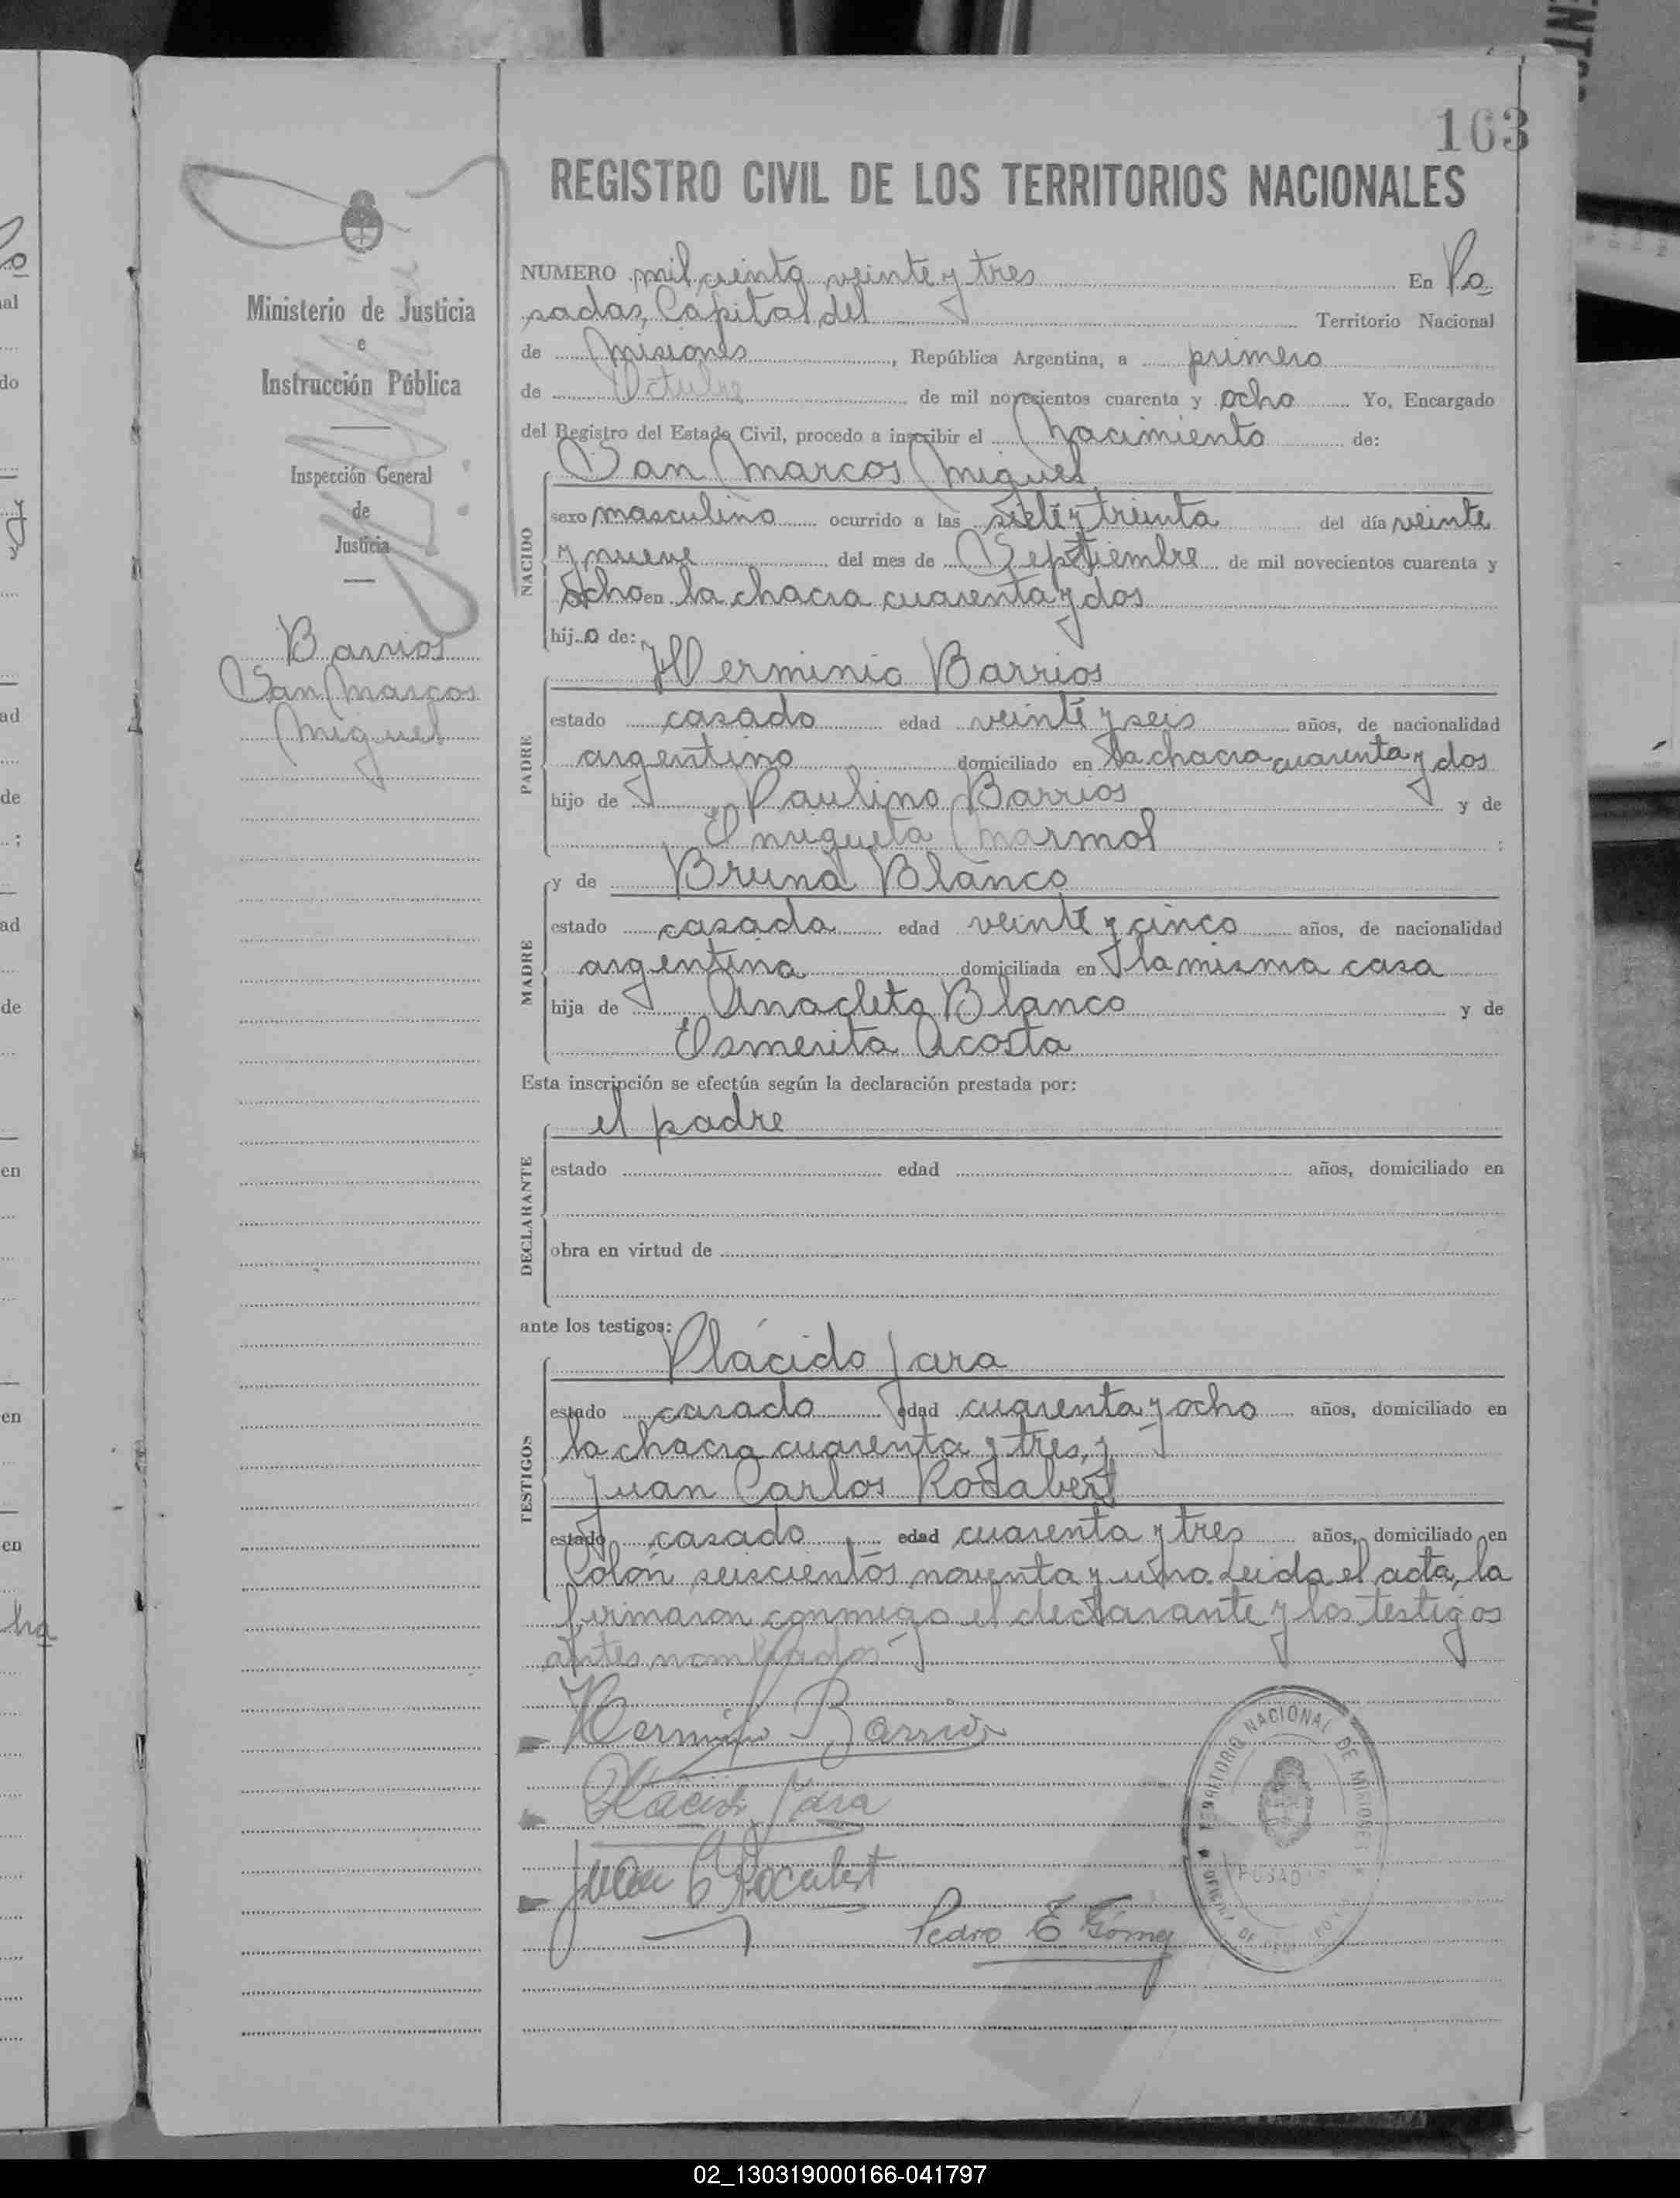 163
REGISTRO CIVIL DE LOS TERRITORIOS NACIONALES
Ministerio de Justicia
e
Instrucción Pública
Inspección General
de
Justicia
Barrios
San Marcos
Miguel
NUMERO mil ciento veinte y tres En Po
sadas, Capital del Territorio Nacional
de Misiones, República Argentina, a primero
de Octubre de mil novecientos cuarenta y ocho Yo, Encargado
del Registro del Estado Civil, procedo a inscribir el Nacimiento de:
San Marcos Miguel
NACIDO
sexo masculino ocurrido a las siete y treinta del día veinte
y nueve del mes de Septiembre de mil novecientos cuarenta y
ocho en la chacra cuarenta y dos
hijo de:
Herminio Barrios
PADRE
estado casado edad veinte y seis años, de nacionalidad
argentino domiciliado en la chacra cuarenta y dos
hijo de Paulino Barrios y de
Enriqueta Marmol ;
y de Bruna Blanco
MADRE
estado casada edad veinte y cinco años, de nacionalidad
argentina domiciliada en la misma casa
hija de Anacleto Blanco y de
Esmerita Acosta
Esta inscripción se efectúa según la declaración prestada por:
el padre
DECLARANTE
estado edad años, domiciliado en
obra en virtud de
ante los testigos:
Plácido Jara
TESTIGOS
estado casado edad cuarenta y ocho años, domiciliado en
la chacra cuarenta y tres, y
Juan Carlos Rocabert
estado casado edad cuarenta y tres años, domiciliado en
Colón seiscientos noventa y uno. Leida el acta, la
firmaron conmigo el declarante y los testigos
antes nombrados-
Herminio Barrios
Placido Jara
Juan C Rocabert
Pedro E Gómez
TERRITORIO NACIONAL DE MISIONES
POSADAS
02_130319000166-041797